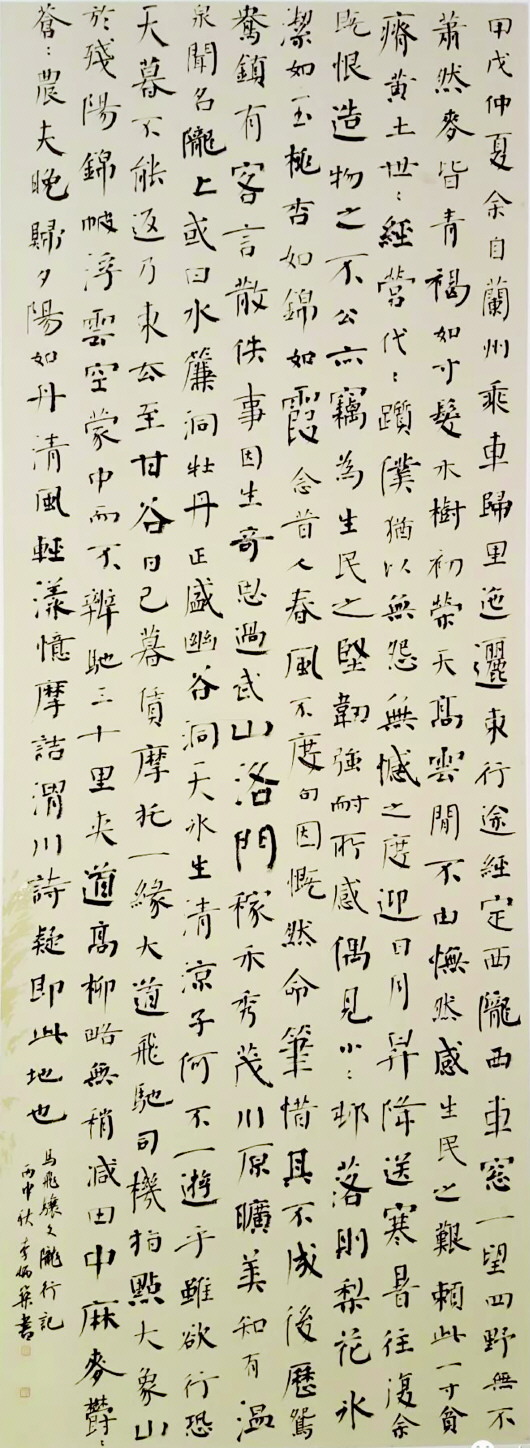 甲戌仲夏余自蘭州乘車歸里迤邐東行途經定西隴西車窓一望四野無不
蕭然麥皆青褐如寸髮水樹初榮天高雲閒不由憮然感生民之艱賴此一寸貧
瘠黄土世〻經營代〻躓僕猶以無怨無憾之度迎日月昇降送寒暑往復余
既恨造物之不公亦竊為生民之堅韌強耐所感偶見小〻邨落則梨花氷
潔如玉桃杏如錦如霞念昔人春風不度句因慨然命筆惜其不成後歷鴛
鴦鎮有客言散佚事因生奇思過武山洛門稼禾秀茂川原曠美知有温
泉聞名隴上或曰水簾洞牡丹正盛幽谷洞天氷生清涼子何不一遊乎雖欲行恐
天暮不能返乃東去至甘谷日已暮賃摩托一緣大道飛馳司機指點大象山
於殘陽錦帔浮雲空蒙中而不辨馳三十里夾道高柳略無稍減田中麻麥欝〻
蒼〻農夫晚歸夕陽如丹清風輕漾憶摩詰渭川詩疑即此地也
馬飛驤之隴行記
丙申秋李炳築書